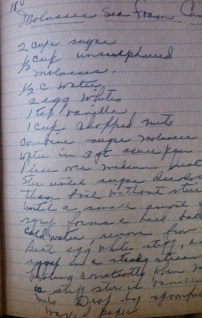 Molasses Sea Foam
2 cups sugar
½ cup unsulphured
molasses
½ c water
2 egg whites
1 tsp vanilla
1 cup chopped nuts
Combine sugar molasses
water in 3 qt sauce pan
Place over medium heat
Stir until sugar dissolves
then boil without
until a small
syrup forms a hard ball
cold water remove from
beat egg whites stiff,
syrup in a steady stream
beating constantly when
is stiff stir in vanilla
nuts Drop by spoonfuls
waxed paper